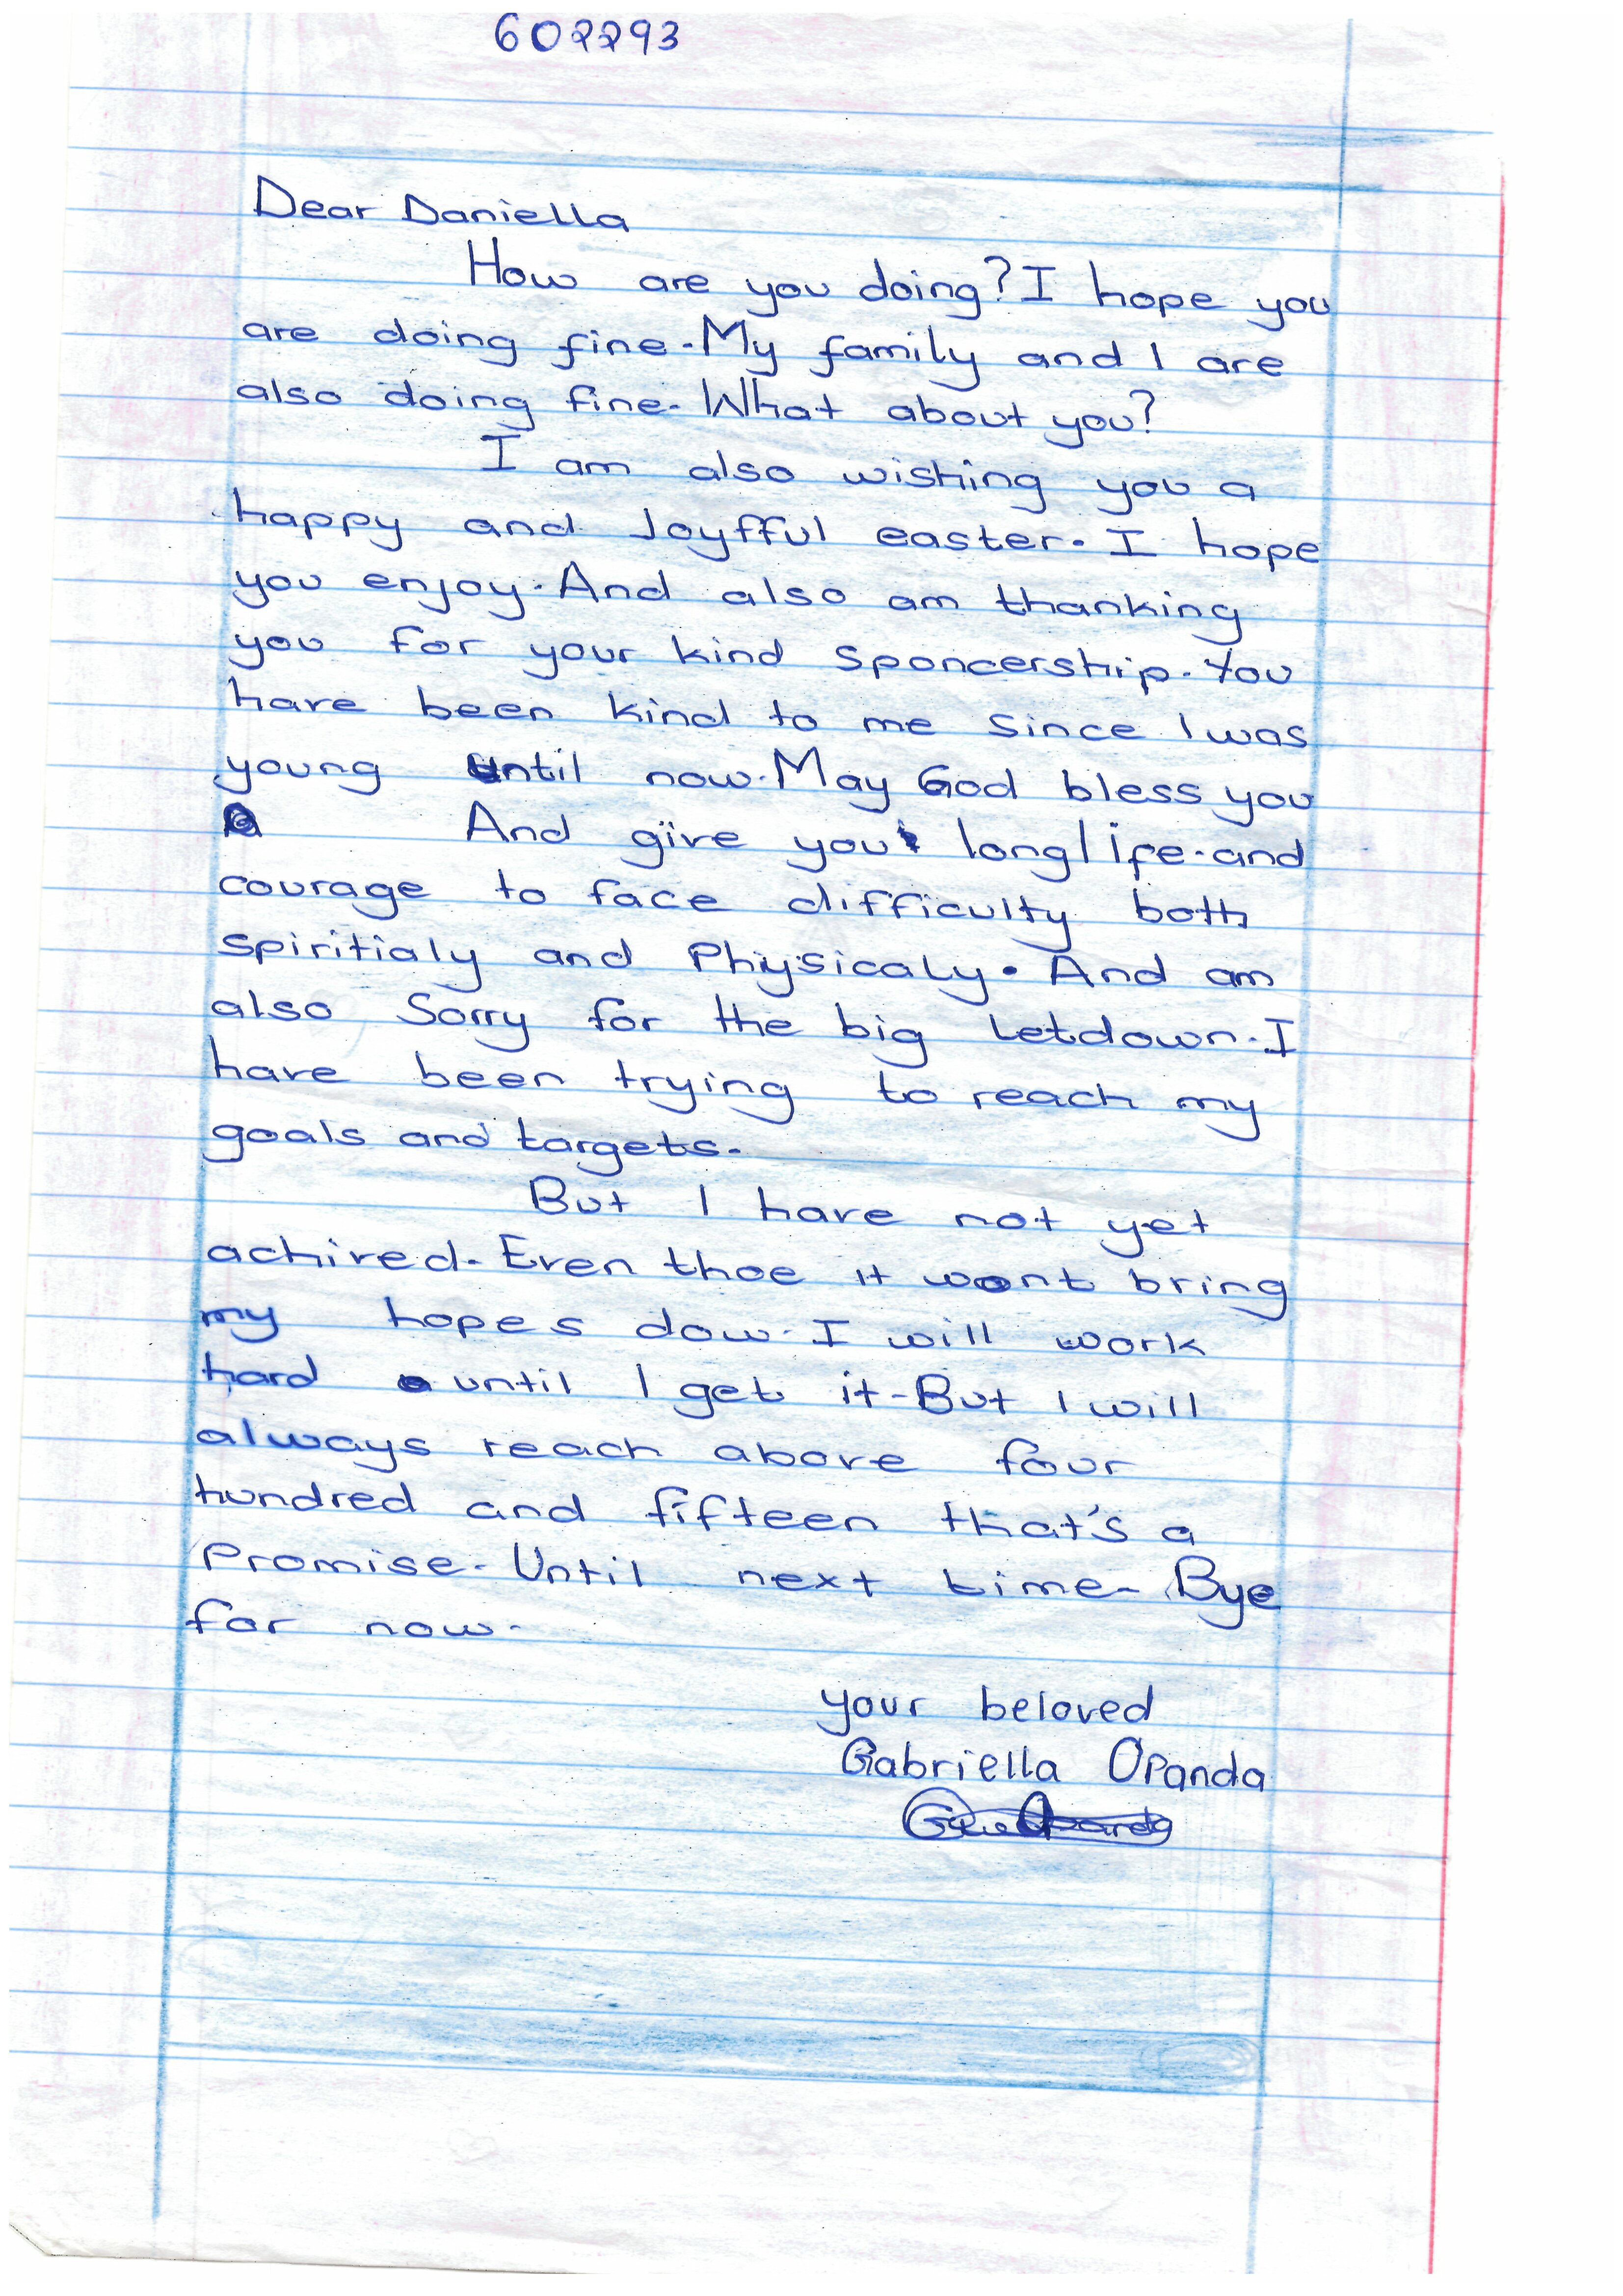 602293
Dear Daniella
How are you doing? I hope you
are doing fine. My family and I are
also doing fine. What about you?
I am also wishing you a
happy and Joyfful easter. I hope
you enjoy. And also am thanking
you for your kind sponcership. You
have been kind to me since I was
young until now. May God bless you
And give you long life. and
courage to face difficulty both
spiritialy and Physicaly. And am
also Sorry for the big letdown. I
have been trying to reach my
goals and targets.
But I have not yet
achived. Even thoe it wont bring
my hopes dow. I will work
hard until I get it. But I will
always reach above four
hundred and fifteen that's a
Promise. Until next time. Bye
for now.
your beloved
Gabriella Opanda